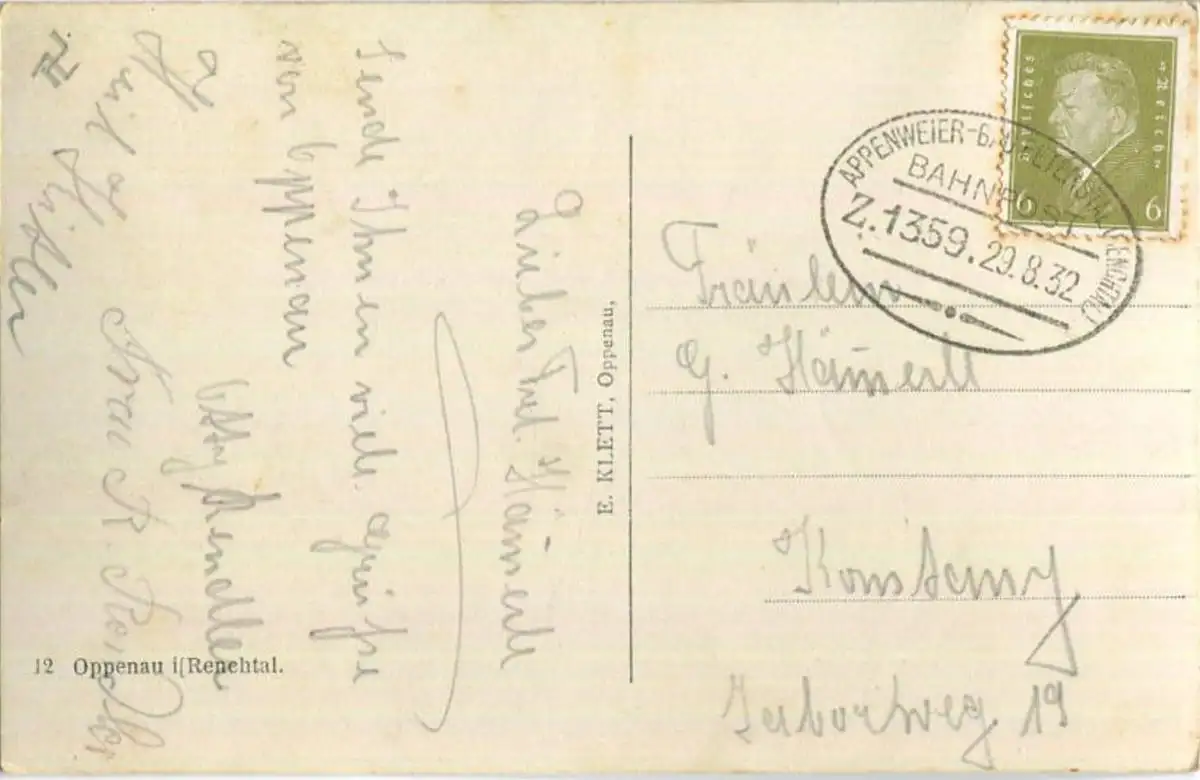 Liebes Frl. Hämerle
Sende Ihnen viele Grüße
von Oppenau
Otty Rendler
Heil Hitler
Frau R.
12 Oppenau i[Renchtal.
E. KLETT, Oppenau,
Deutsches Reich
6 6
APPENWEIER-BAD PETERSTAL (RENCHTAL)
BAHNPOST
Z.1359.29.8.32
Fräulein
G. Hämerle
Konstanz
19